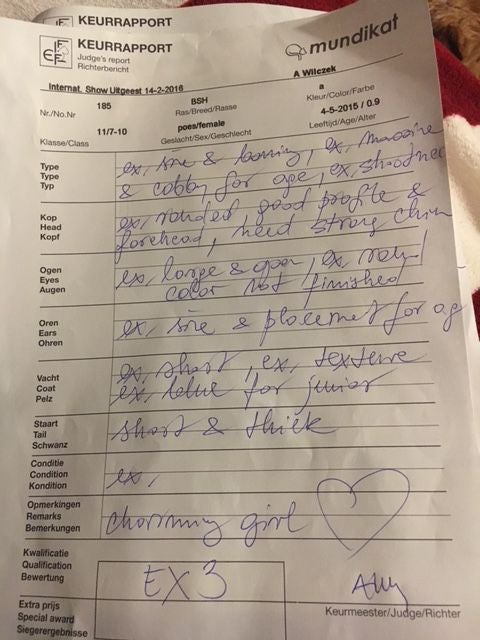 KEURRAPPORT
FIFe KEURRAPPORT
Judge's report
Richterbericht
mundikat
Internat. Show Uitgeest 14-2-2016
A Wilczek
185
BSH
a
Nr./No.Nr
Ras/Breed/Rasse
Kleur/Color/Farbe
11/7-10
poes/female
4-5-2015 / 0.9
Klasse/Class
Geslacht/Sex/Geschlecht
Leeftijd/Age/Alter
Type
Type
Typ
ex, size & boning, ex, massive
& cobby for age, ex, shortness
Kop
Head
Kopf
ex, rounded good profile &
forehead, need strong chin
Ogen
Eyes
Augen
ex, large & open, ex, round
color not finished
Oren
Ears
Ohren
ex, size & placemet for ag
Vacht
Coat
Pelz
ex, short, ex, texture
ex, value for junior
Staart
Tail
Schwanz
short & thick
Conditie
Condition
Kondition
ex,
Opmerkingen
Remarks
Bemerkungen
charming girl
Kwalificatie
Qualification
Bewertung
EX3
Keurmeester/Judge/Richter
Extra prijs
Special award
Siegerergebnisse